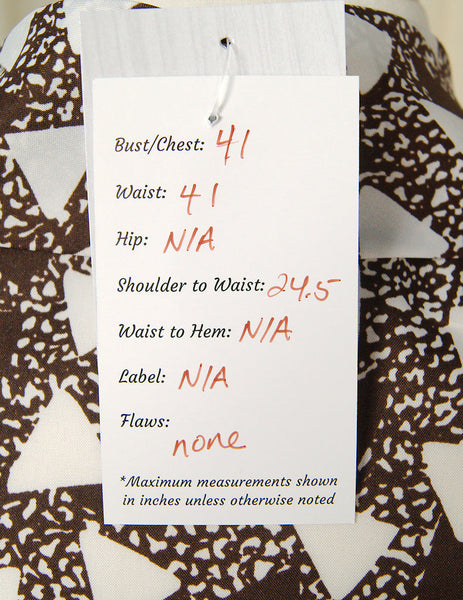 Bust/Chest: 41
Waist: 41
Hip: N/A
Shoulder to Waist: 24.5
Waist to Hem: N/A
Label: N/A
Flaws:
none
*Maximum measurements shown
in inches unless otherwise noted